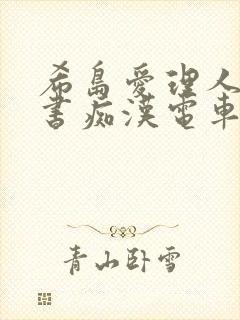 希島愛理人
書痴漢電車
青山卧雪